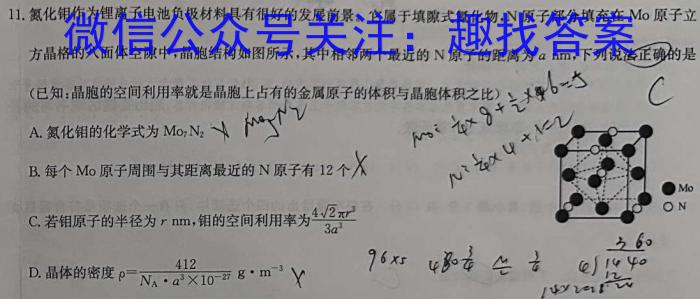 11. 氮化钼作为锂离子电池负极材料具有很好的发展前景。它属于填隙式氮化物,N原子部分填充在Mo原子立
方晶格的八面体空隙中,晶胞结构如图所示,其中相邻两个最近的N原子的距离为a nm,下列说法正确的是
微信公众号关注：趣找答案
(已知:晶胞的空间利用率就是晶胞上占有的金属原子的体积与晶胞体积之比)
C
A. 氮化钼的化学式为Mo₇N₂
Mo₂N
B. 每个Mo原子周围与其距离最近的N原子有12个
C. 若钼原子的半径为r nm,钼的空间利用率为4√2πr³/3a³
D. 晶体的密度ρ=412/(N_A·a³×10⁻²⁷) g·m⁻³
Mo
N
96×5